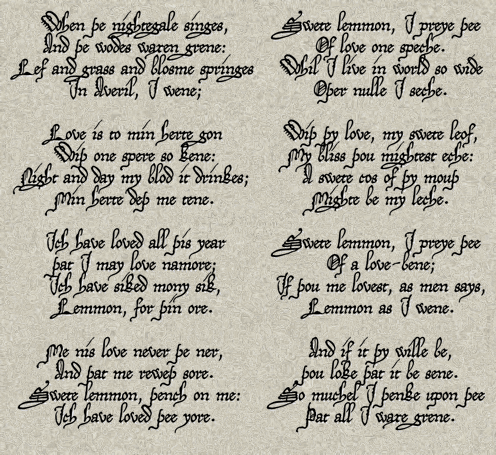 When þe nightegale singes,
And þe wodes waren grene:
Lef and grass and blosme springes
In Averil, I wene;
Love is to min herte gon
Wiþ one spere so kene:
Night and day my blod it drinkes;
Min herte deþ me tene.
Ich have loved all þis year
þat I may love namore;
Ich have siked mony sik,
Lemmon, for þin ore.
Me nis love never þe ner,
And þat me reweþ sore.
Swete lemmon, þench on me:
Ich have loved þee yore.
Swete lemmon, I preye þee
Of love one speche.
Whil I live in world so wide
Oþer nulle I seche.
Wiþ þy love, my swete leof,
My bliss þou mightest eche:
A swete cos of þy mouþ
Mighte be my leche.
Swete lemmon, I preye þee
Of a love-bene;
If þou me lovest, as men says,
Lemmon as I wene.
And if it þy wille be,
þou loke þat it be sene.
So muchel I þenke upon þee
Þat all I waxe grene.